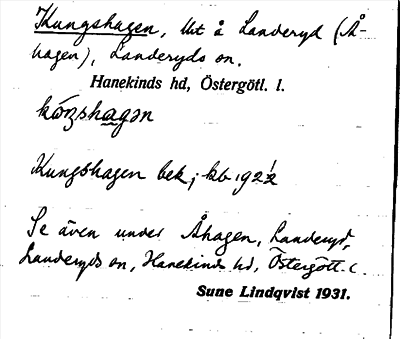 Kungshagen, lht å Landeryd (Å-
hagen), Landeryds sn.
Hanekinds hd, Östergötl. l.
Kungshagen bek; kb 1922
Se även under Åhagen, Landeryd,
Landeryds sn, Hanekinds hd, Östergötl. l.
Sune Lindqvist 1931.